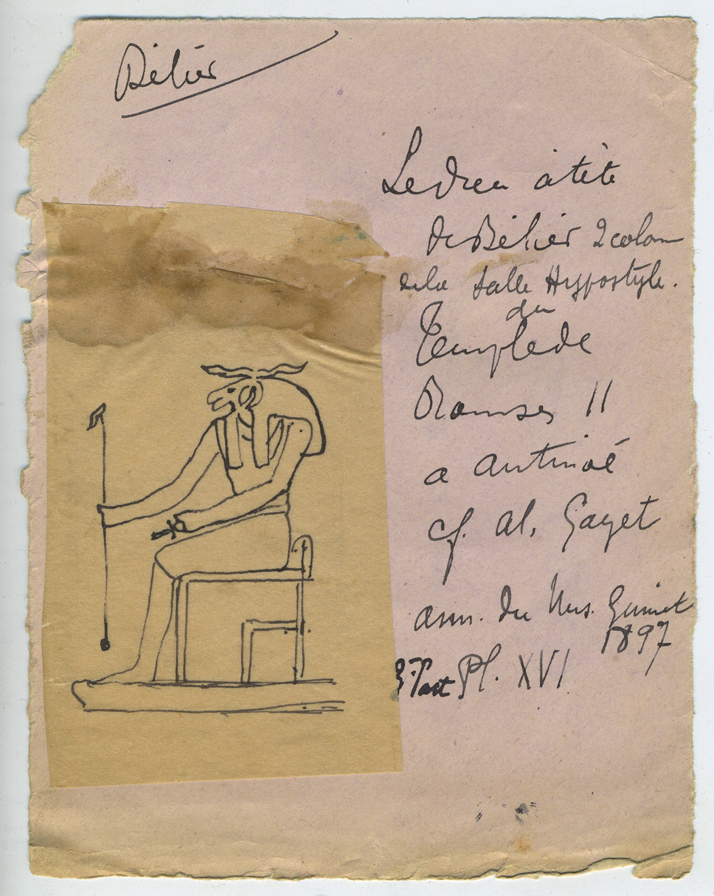 Bélier
Le dieu à tête
de Bélier 2 colon
de la Salle Hypostyle.
du
Temple de
Ramses II
a Antinoé
cf. Al. Gayet
ann. du Mus. Guimet
1897
3e Part Pl. XVI